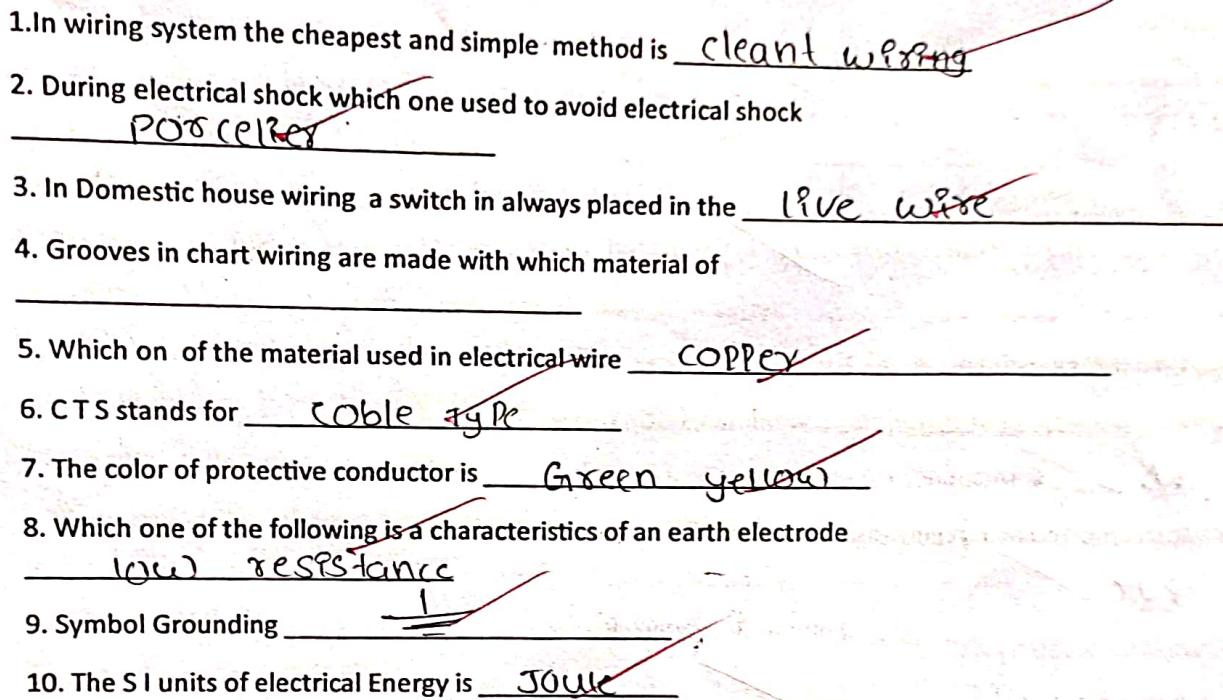 1.In wiring system the cheapest and simple method is cleant wiring
2. During electrical shock which one used to avoid electrical shock
Porcelier
3. In Domestic house wiring a switch in always placed in the live wire
4. Grooves in chart wiring are made with which material of
5. Which on of the material used in electrical wire copper
6. C T S stands for coble type
7. The color of protective conductor is Green yellow
8. Which one of the following is a characteristics of an earth electrode
low resistance
9. Symbol Grounding
10. The S I units of electrical Energy is Joule